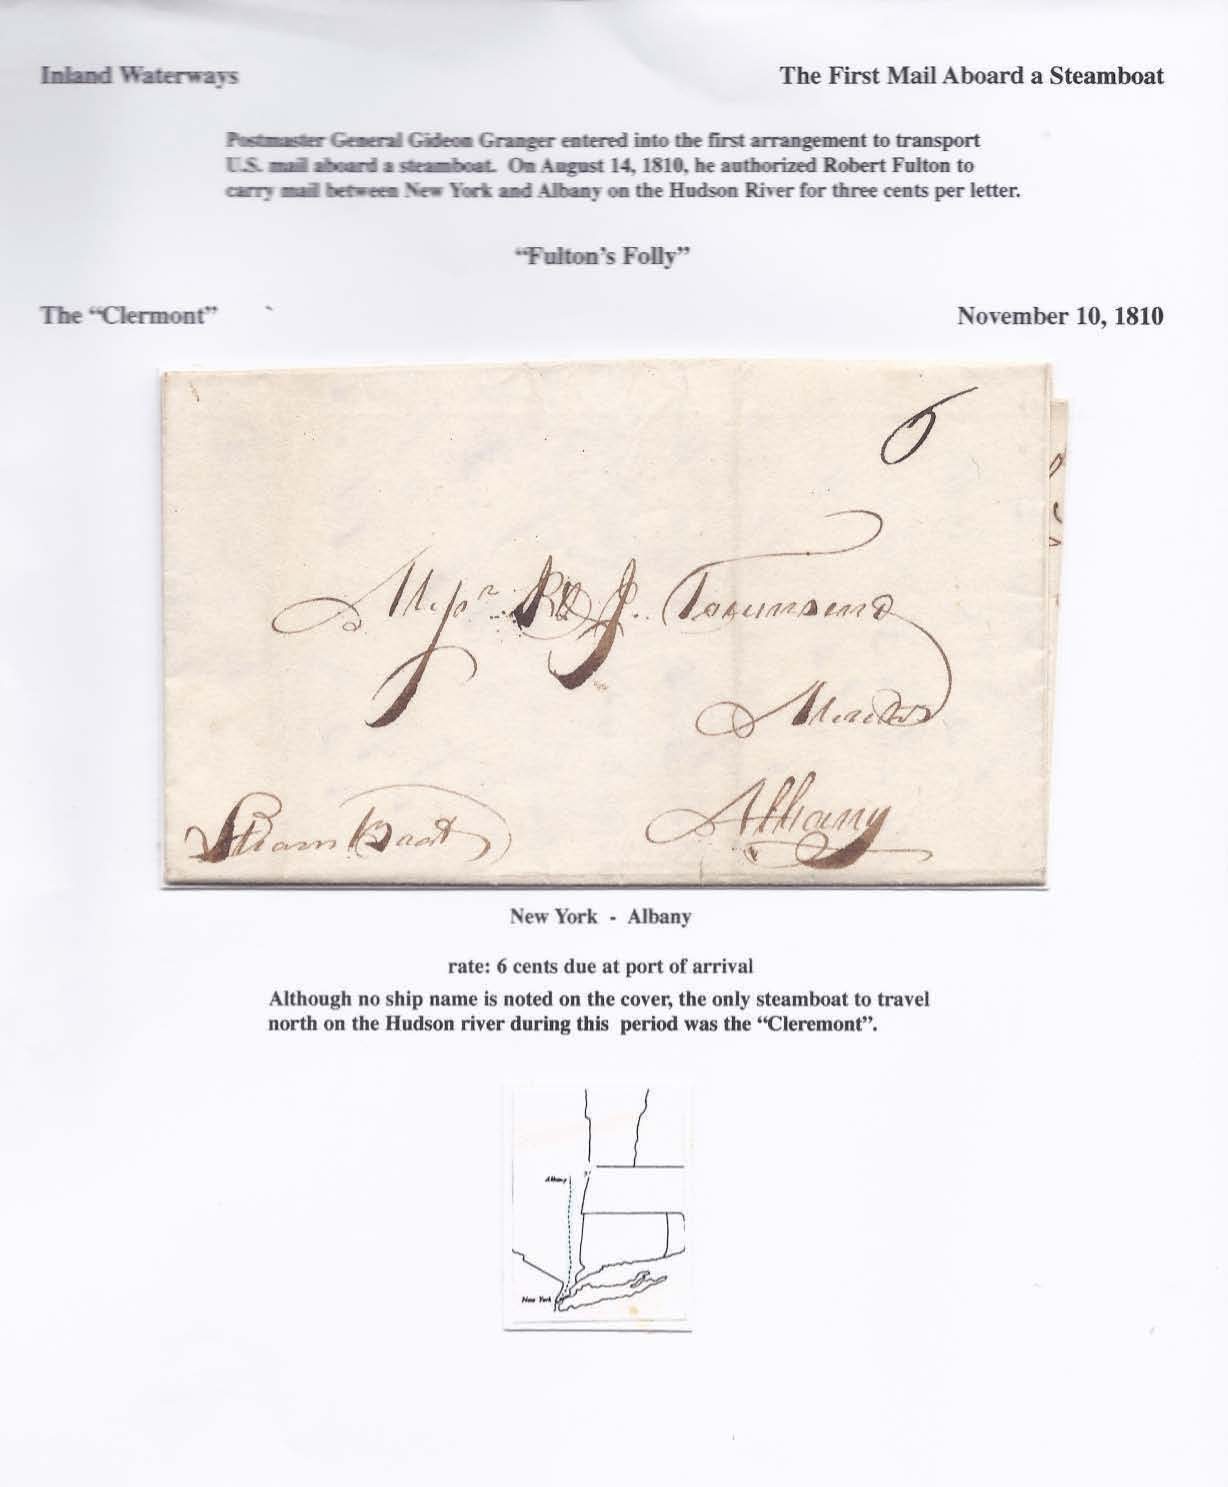 Inland Waterways
The First Mail Aboard a Steamboat
Postmaster General Gideon Granger entered into the first arrangement to transport
U.S. mail aboard a steamboat. On August 14, 1810, he authorized Robert Fulton to
carry mail between New York and Albany on the Hudson River for three cents per letter.
“Fulton’s Folly”
The “Clermont”
November 10, 1810
6
Messrs. J. Townsend
Albany
Steam Boat
New York - Albany
rate: 6 cents due at port of arrival
Although no ship name is noted on the cover, the only steamboat to travel
north on the Hudson river during this period was the “Cleremont”.
Albany
New York